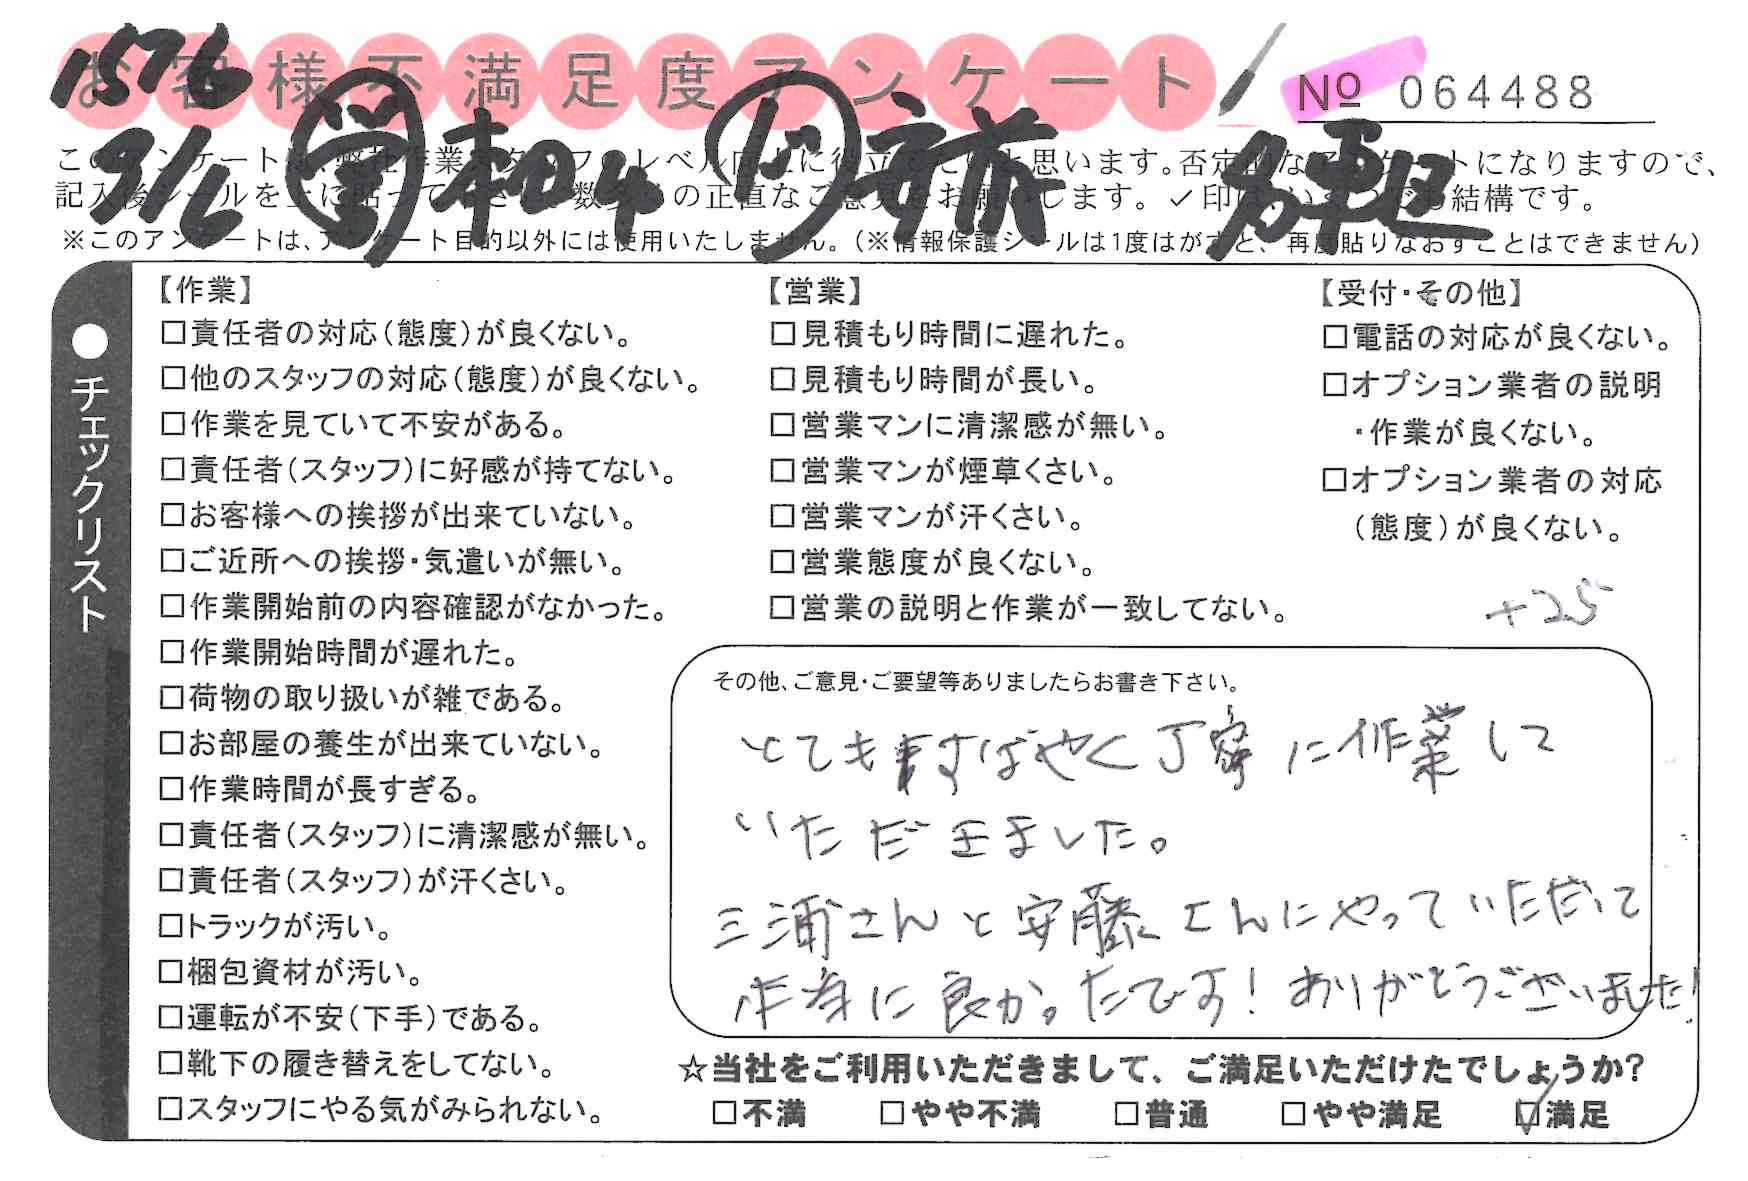 お客様不満足度アンケート
No 064488
1576
このアンケートは、弊社作業スタッフのレベル向上に役立てたいと思います。否定的なアンケートになりますので、
記入後シールを上に貼って下さい。数多くの正直なご意見をお願いします。✓印はいくつでも結構です。
※このアンケートは、アンケート目的以外には使用いたしません。(※情報保護シールは1度はがすと、再度貼りなおすことはできません)
●チェックリスト
【作業】
□責任者の対応(態度)が良くない。
□他のスタッフの対応(態度)が良くない。
□作業を見ていて不安がある。
□責任者(スタッフ)に好感が持てない。
□お客様への挨拶が出来ていない。
□ご近所への挨拶・気遣いが無い。
□作業開始前の内容確認がなかった。
□作業開始時間が遅れた。
□荷物の取り扱いが雑である。
□お部屋の養生が出来ていない。
□作業時間が長すぎる。
□責任者(スタッフ)に清潔感が無い。
□責任者(スタッフ)が汗くさい。
□トラックが汚い。
□梱包資材が汚い。
□運転が不安(下手)である。
□靴下の履き替えをしてない。
□スタッフにやる気がみられない。
【営業】
□見積もり時間に遅れた。
□見積もり時間が長い。
□営業マンに清潔感が無い。
□営業マンが煙草くさい。
□営業マンが汗くさい。
□営業態度が良くない。
□営業の説明と作業が一致してない。
【受付・その他】
□電話の対応が良くない。
□オプション業者の説明
・作業が良くない。
□オプション業者の対応
(態度)が良くない。
+25
その他、ご意見・ご要望等ありましたらお書き下さい。
とてもすばやく丁寧に作業して
いただきました。
三浦さんと安藤さんにやっていただいて
本当に良かったです!ありがとうございました!
☆当社をご利用いただきまして、ご満足いただけたでしょうか?
□不満 □やや不満 □普通 □やや満足 ☑満足